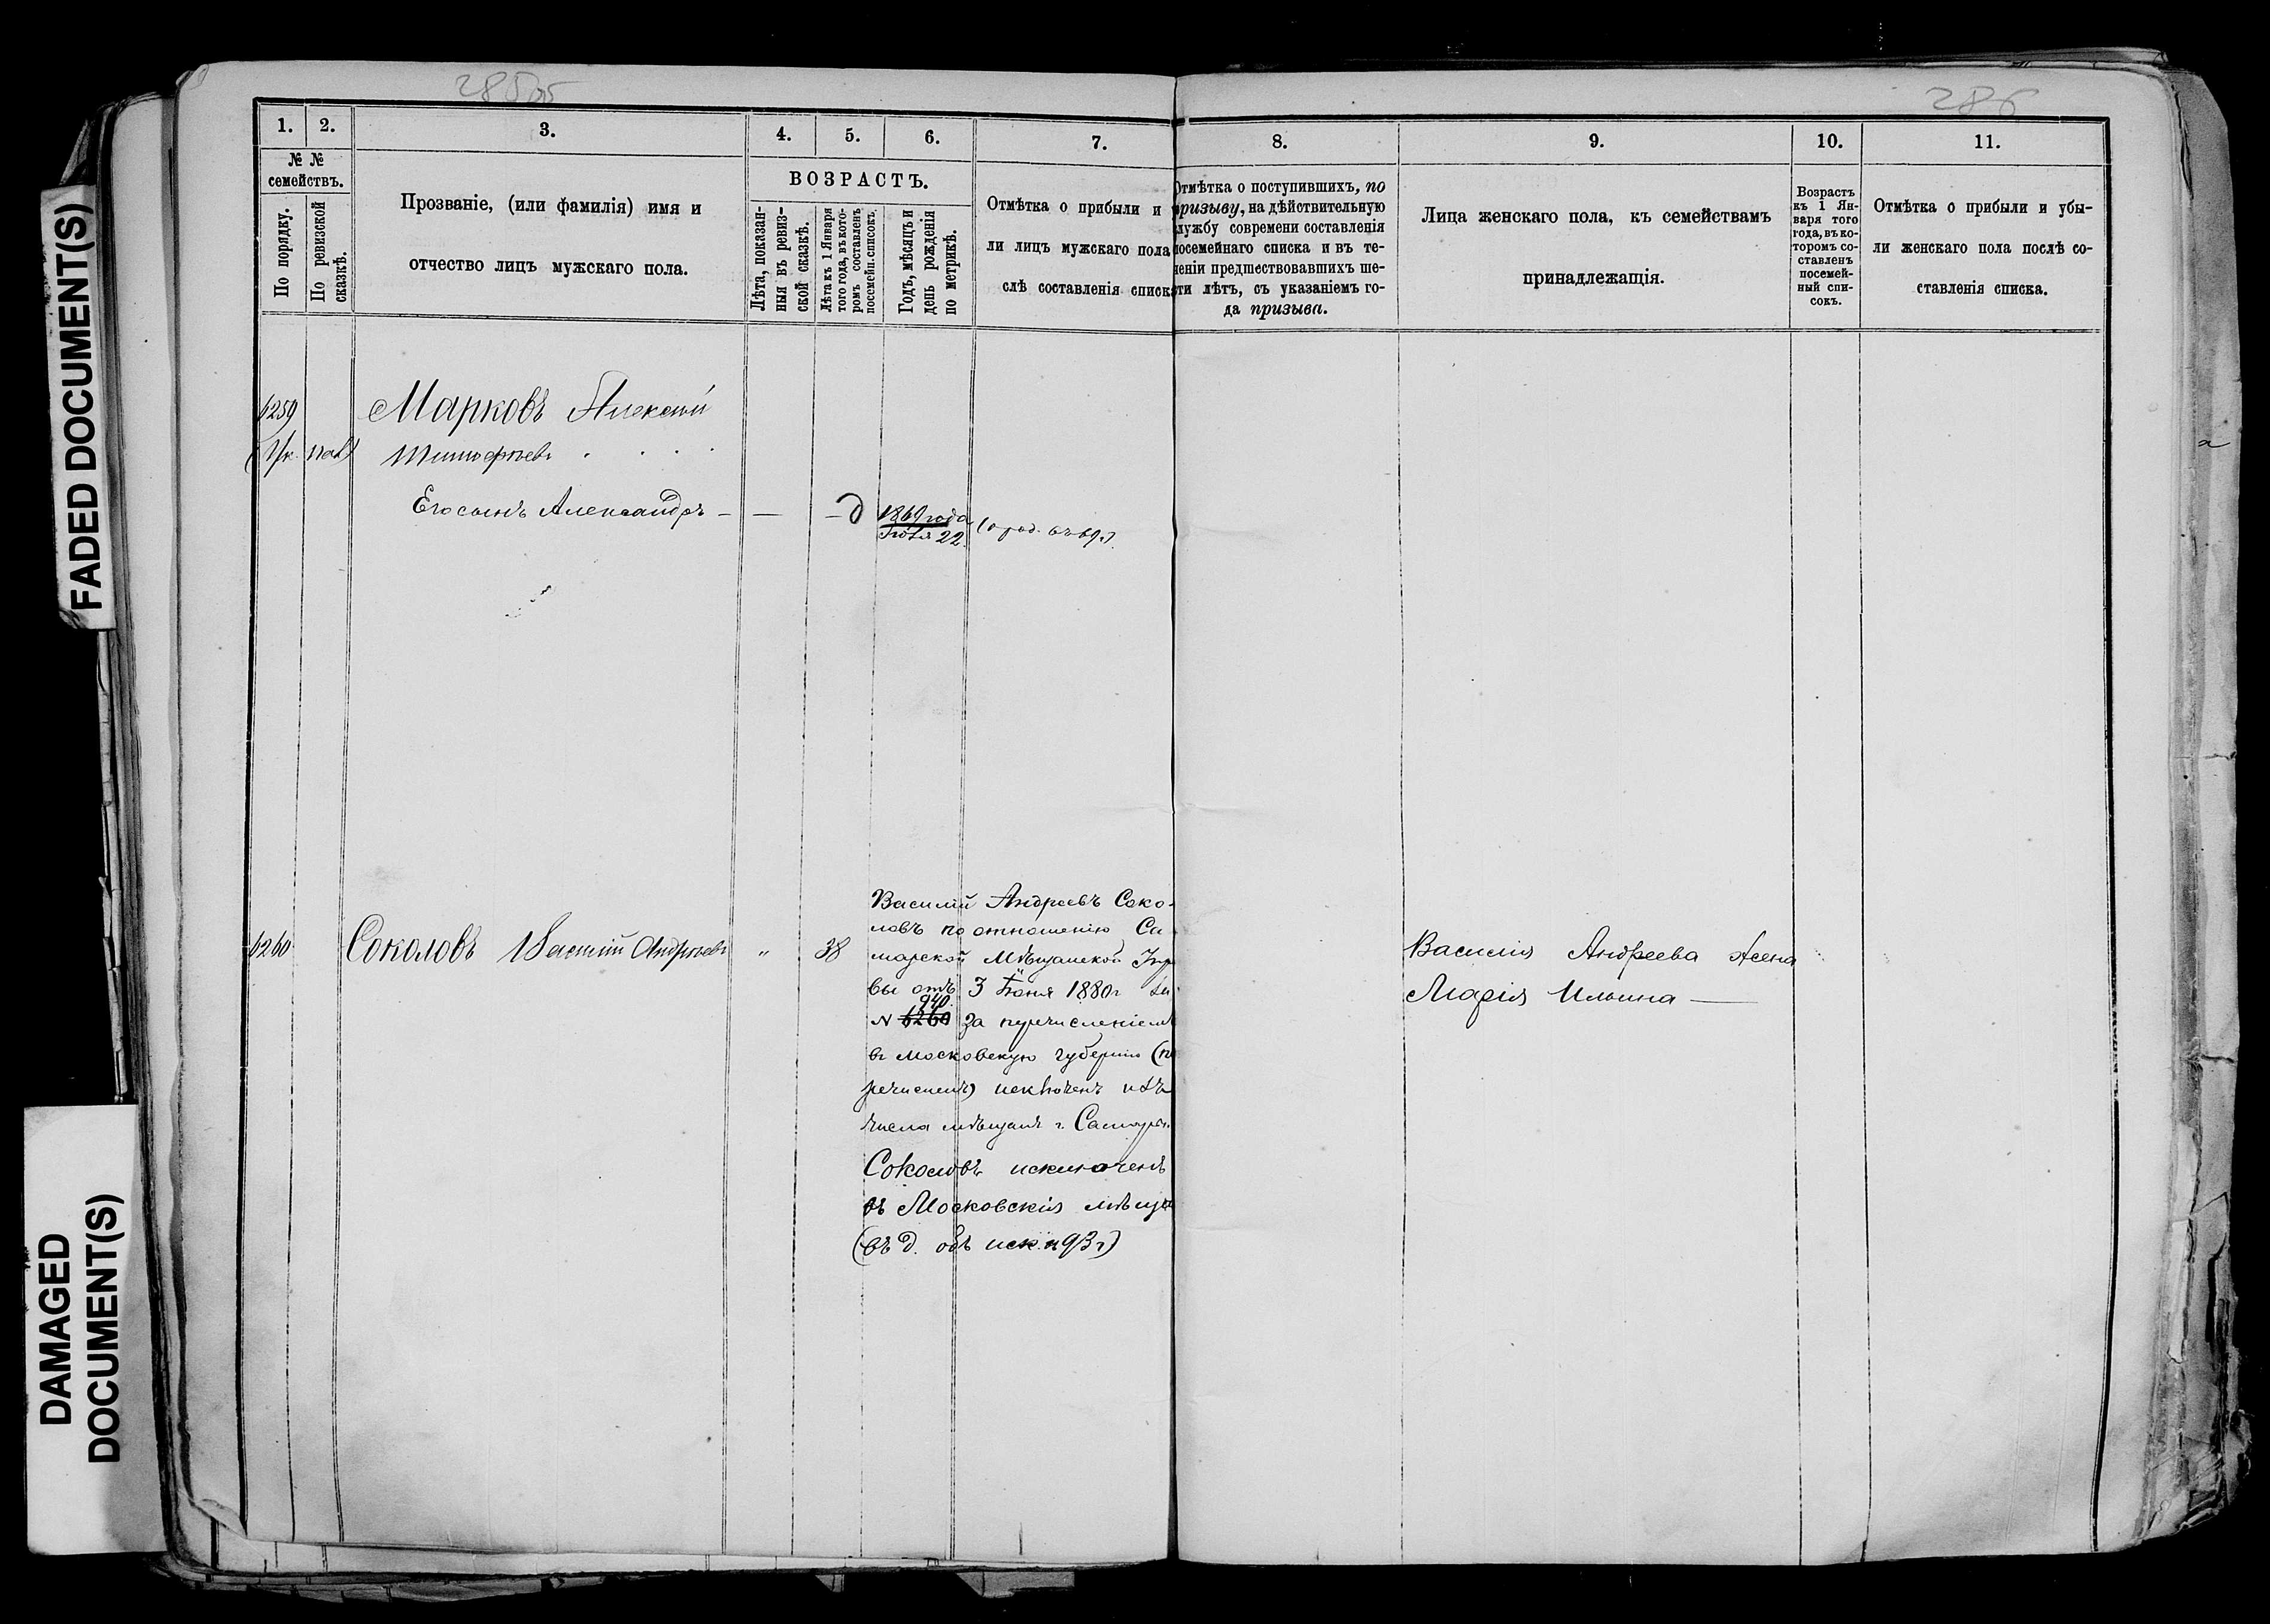 285об
286
FADED DOCUMENT(S)
DAMAGED
DOCUMENT(S)
1.
2.
3.
4.
5.
6.
7.
№ №
семействъ.
По порядку.
По ревизской
сказкѣ.
Прозваніе, (или фамилія) имя и
отчество лицъ мужскаго пола.
ВОЗРАСТЪ.
Лѣта, показан-
ныя въ ревиз-
ской сказкѣ.
Лѣта къ 1 Января
того года, въ кото-
ромъ составленъ
посемейн. списокъ.
Годъ, мѣсяцъ и
день рожденія
по метрикѣ.
Отмѣтка о прибыли и
ли лицъ мужскаго пола
слѣ составленія списк
8.
9.
10.
11.
Отмѣтка о поступившихъ, по
призыву, на дѣйствительную
лужбу современи составленія
посемейнаго списка и въ те-
неніи предшествовавшихъ ше-
сти лѣтъ, съ указаніемъ го-
да призыва.
Лица женскаго пола, къ семействамъ
принадлежащія.
Возрастъ
къ 1 Ян-
варя того
года, въ ко-
торомъ со-
ставленъ
посемей-
ный спи-
сокъ.
Отмѣтка о прибыли и убы-
ли женскаго пола послѣ со-
ставленія списка.
6259
Марковъ Алексѣй
Тимофѣевъ
Его сынъ Александръ — —
1869 года
22
6260
Соколовъ Василій Андрѣевъ " 38
Василій Андреевъ Соко-
ловъ по отношенію Са
марской Мѣщанской Упр
вы отъ 3 Іюня 1880г за
940
N 6260 за перечисленіемъ
въ Московскую губернію (п
речисленъ) исключенъ изъ
числа мѣщанъ г. Самары.
Соколовъ исключенъ
въ Московскія мѣща
(въ д. объ иск. 93г)
Василія Андреева жена
Марія Ильина —